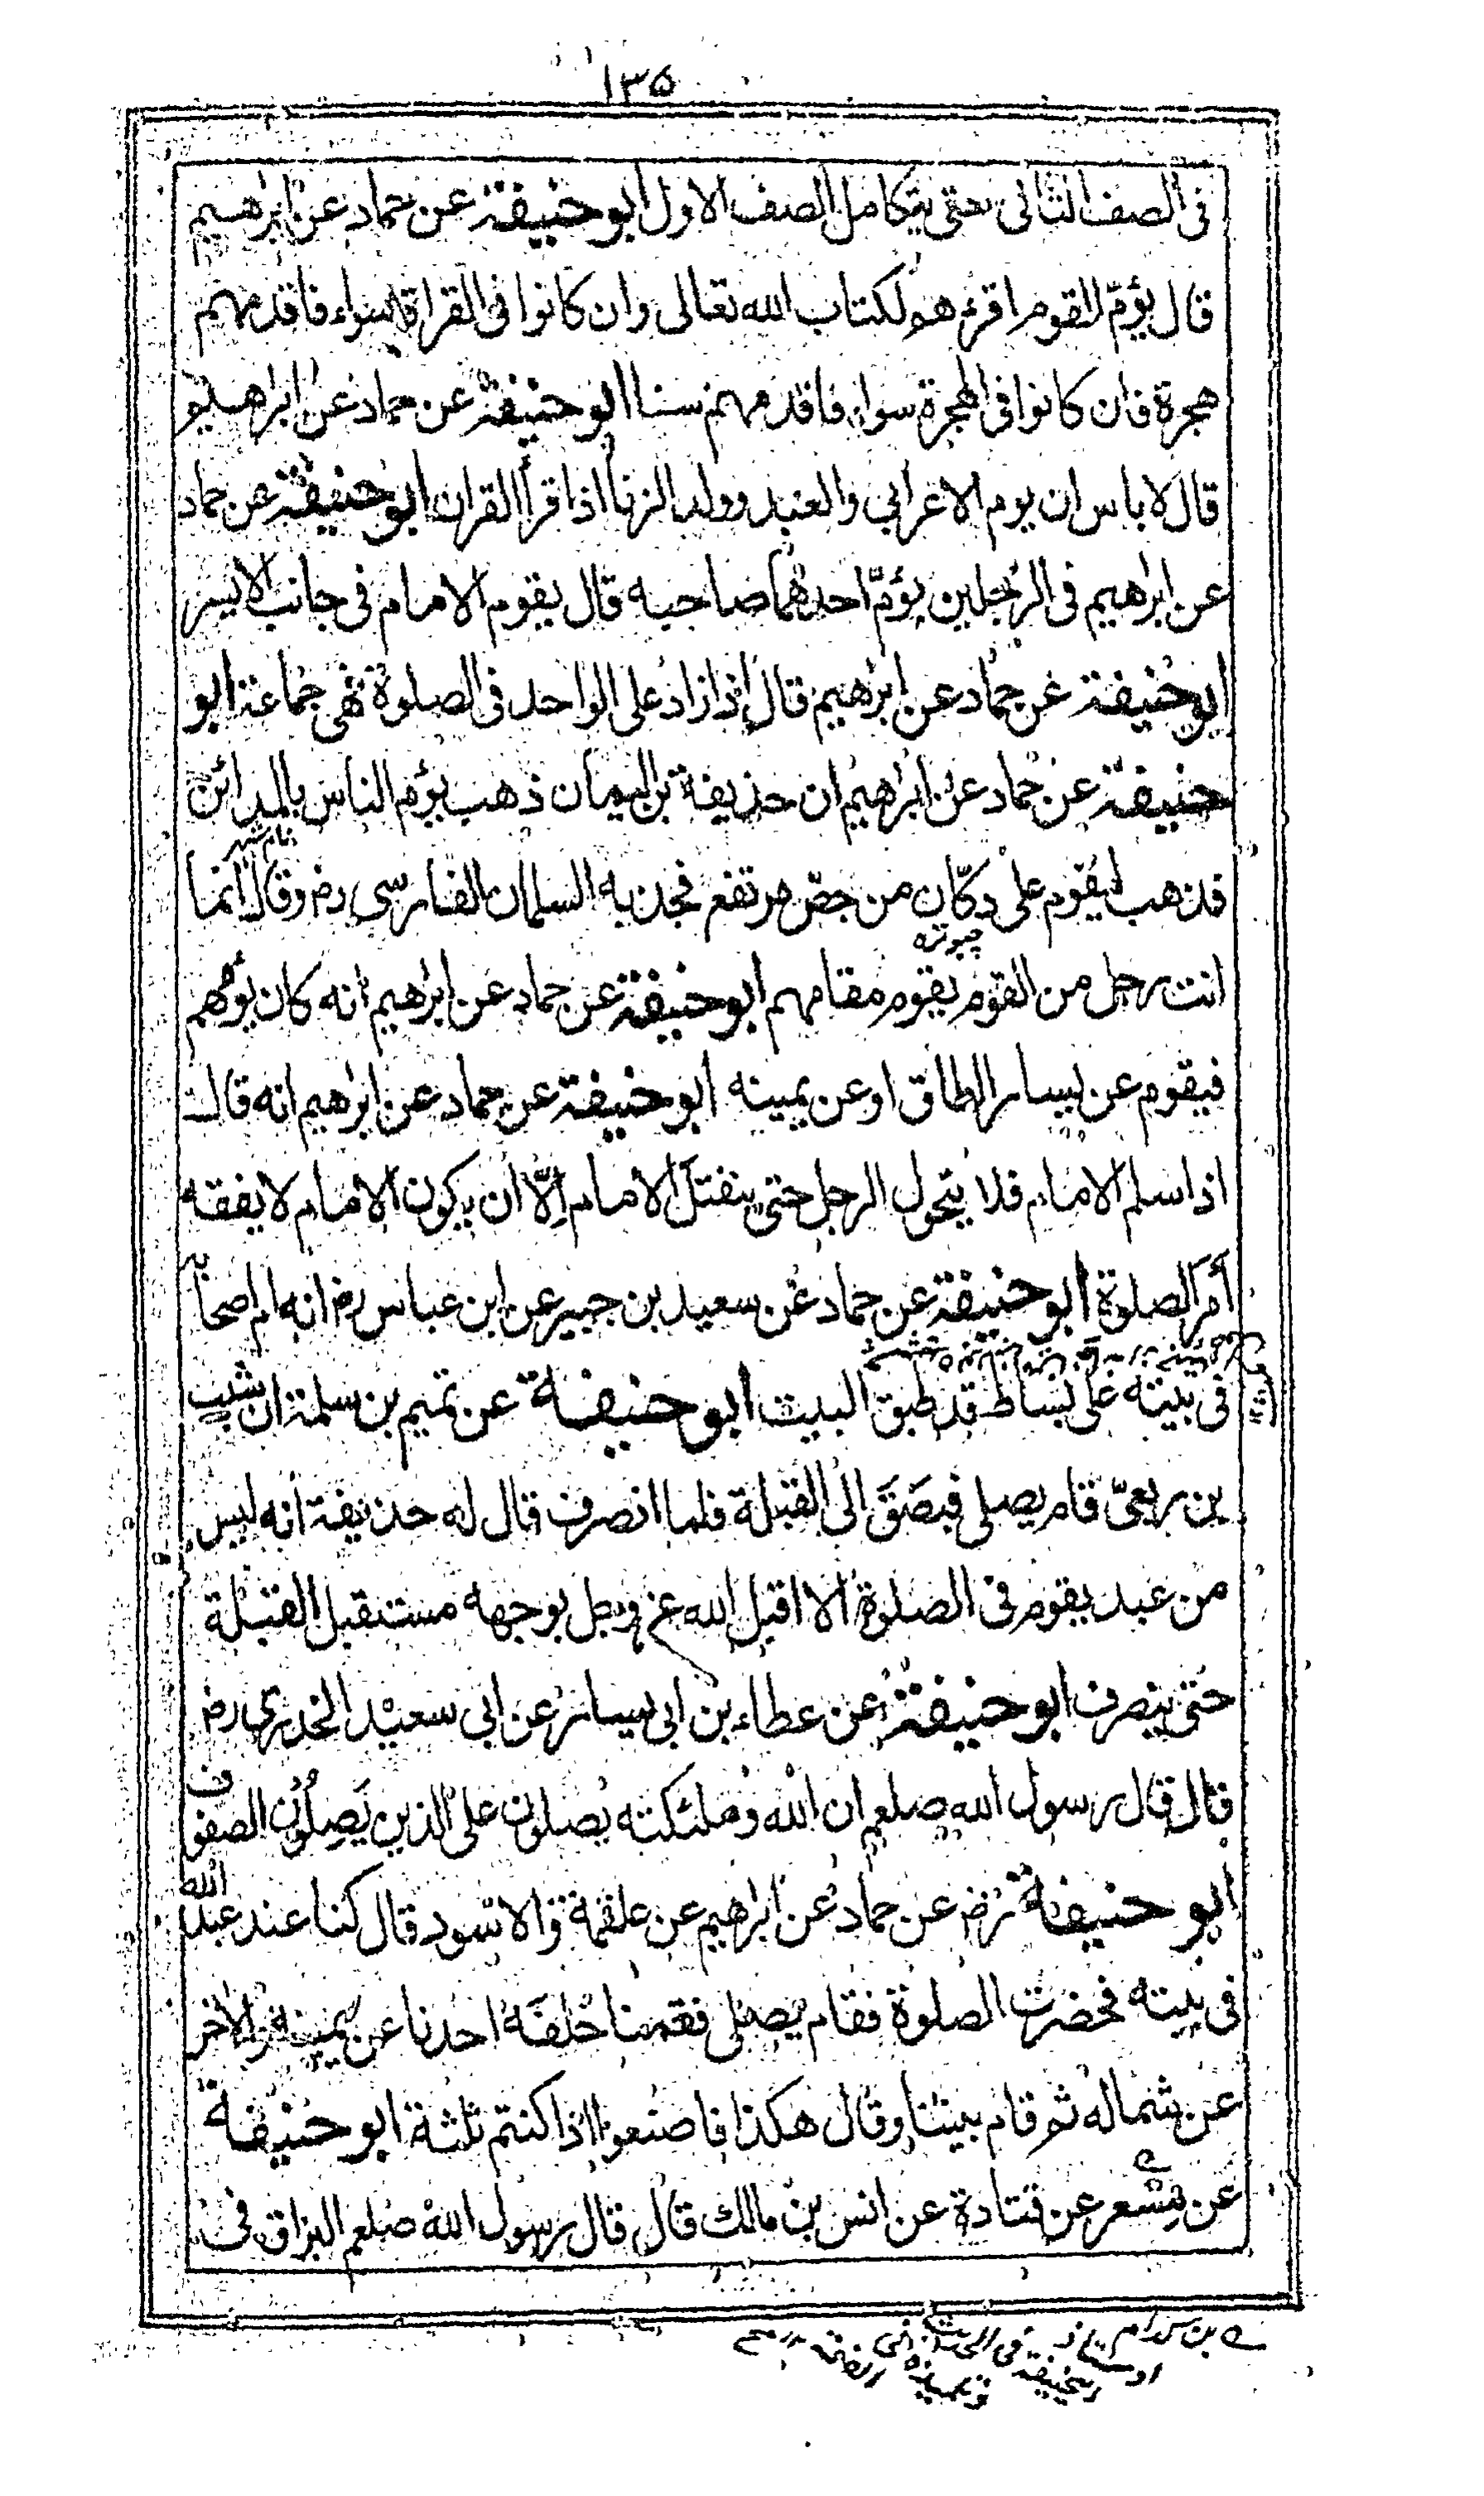 ١٣٥
فى الصف الثانى حتى يتكامل الصف الاول ابو حنيفة عن حماد عن ابرهيم
قال يؤمّ القوم اقرءهم لكتاب الله تعالى وان كانوا فى القراءة سواء فاقدمهم
هجرة فان كانوا فى الهجرة سواء فاقدمهم سنا ابو حنيفة عن حماد عن ابرهيم
قال لا باس ان يوم الاعرابي والعبد وولد الزنا اذا قرأ القران ابو حنيفة عن حماد
عن ابرهيم فى الرجلين يؤمّ احدهما صاحبه قال يقوم الامام فى جانب الايسر
ابو حنيفة عن حماد عن ابرهيم قال اذا زاد على الواحد فى الصلوة فهى جماعة ابو
حنيفة عن حماد عن ابرهيم ان حذيفة بن اليمان ذهب يؤم الناس بالمدائن
نام شهر
فذهب ليقوم على دكّان من جصّ مرتفع فجذبه السلمان الفارسي رض وقال انما
چبوتره
انت رجل من القوم يقوم مقامهم ابو حنيفة عن حماد عن ابرهيم انه كان يؤمهم
فيقوم عن يسار الطاق او عن يمينه ابو حنيفة عن حماد عن ابرهيم انه قال
اذا سلم الامام فلا يتحول الرجل حتى ينفتل الامام إلّا ان يكون الامام لا يفقه
أمر الصلوة ابو حنيفة عن حماد عن سعيد بن جبير عن ابن عباس رض انه ام اصحابه
فى بيته على بساط قد طبق البيت ابو حنيفة عن تميم بن سلمة ان شبث
بن ربعىّ قام يصلى فبصَقَ الى القبلة فلما انصرف قال له حذيفة انه ليس
من عبد يقوم فى الصلوة الا اقبل الله عز وجل بوجهه مستقبل القبلة
حتى ينصرف ابو حنيفة عن عطاء بن ابى يسار عن ابى سعيد الخدري رض
قال قال رسول الله صلعم ان الله وملئكته يصلون على الذين يَصِلُون الصفوف
ابو حنيفة رض عن حماد عن ابرهيم عن علقمة والاسود قال كنا عند عبد الله
فى بيته فحضرت الصلوة فقام يصلى فقمنا خلفه احدنا عن يمينه والاخر
عن شماله ثم قام بيننا وقال هكذا فاصنعوا اذا كنتم ثلثة ابو حنيفة
عن مِسْعر عن قتادة عن انس بن مالك قال قال رسول الله صلعم البزاق فى